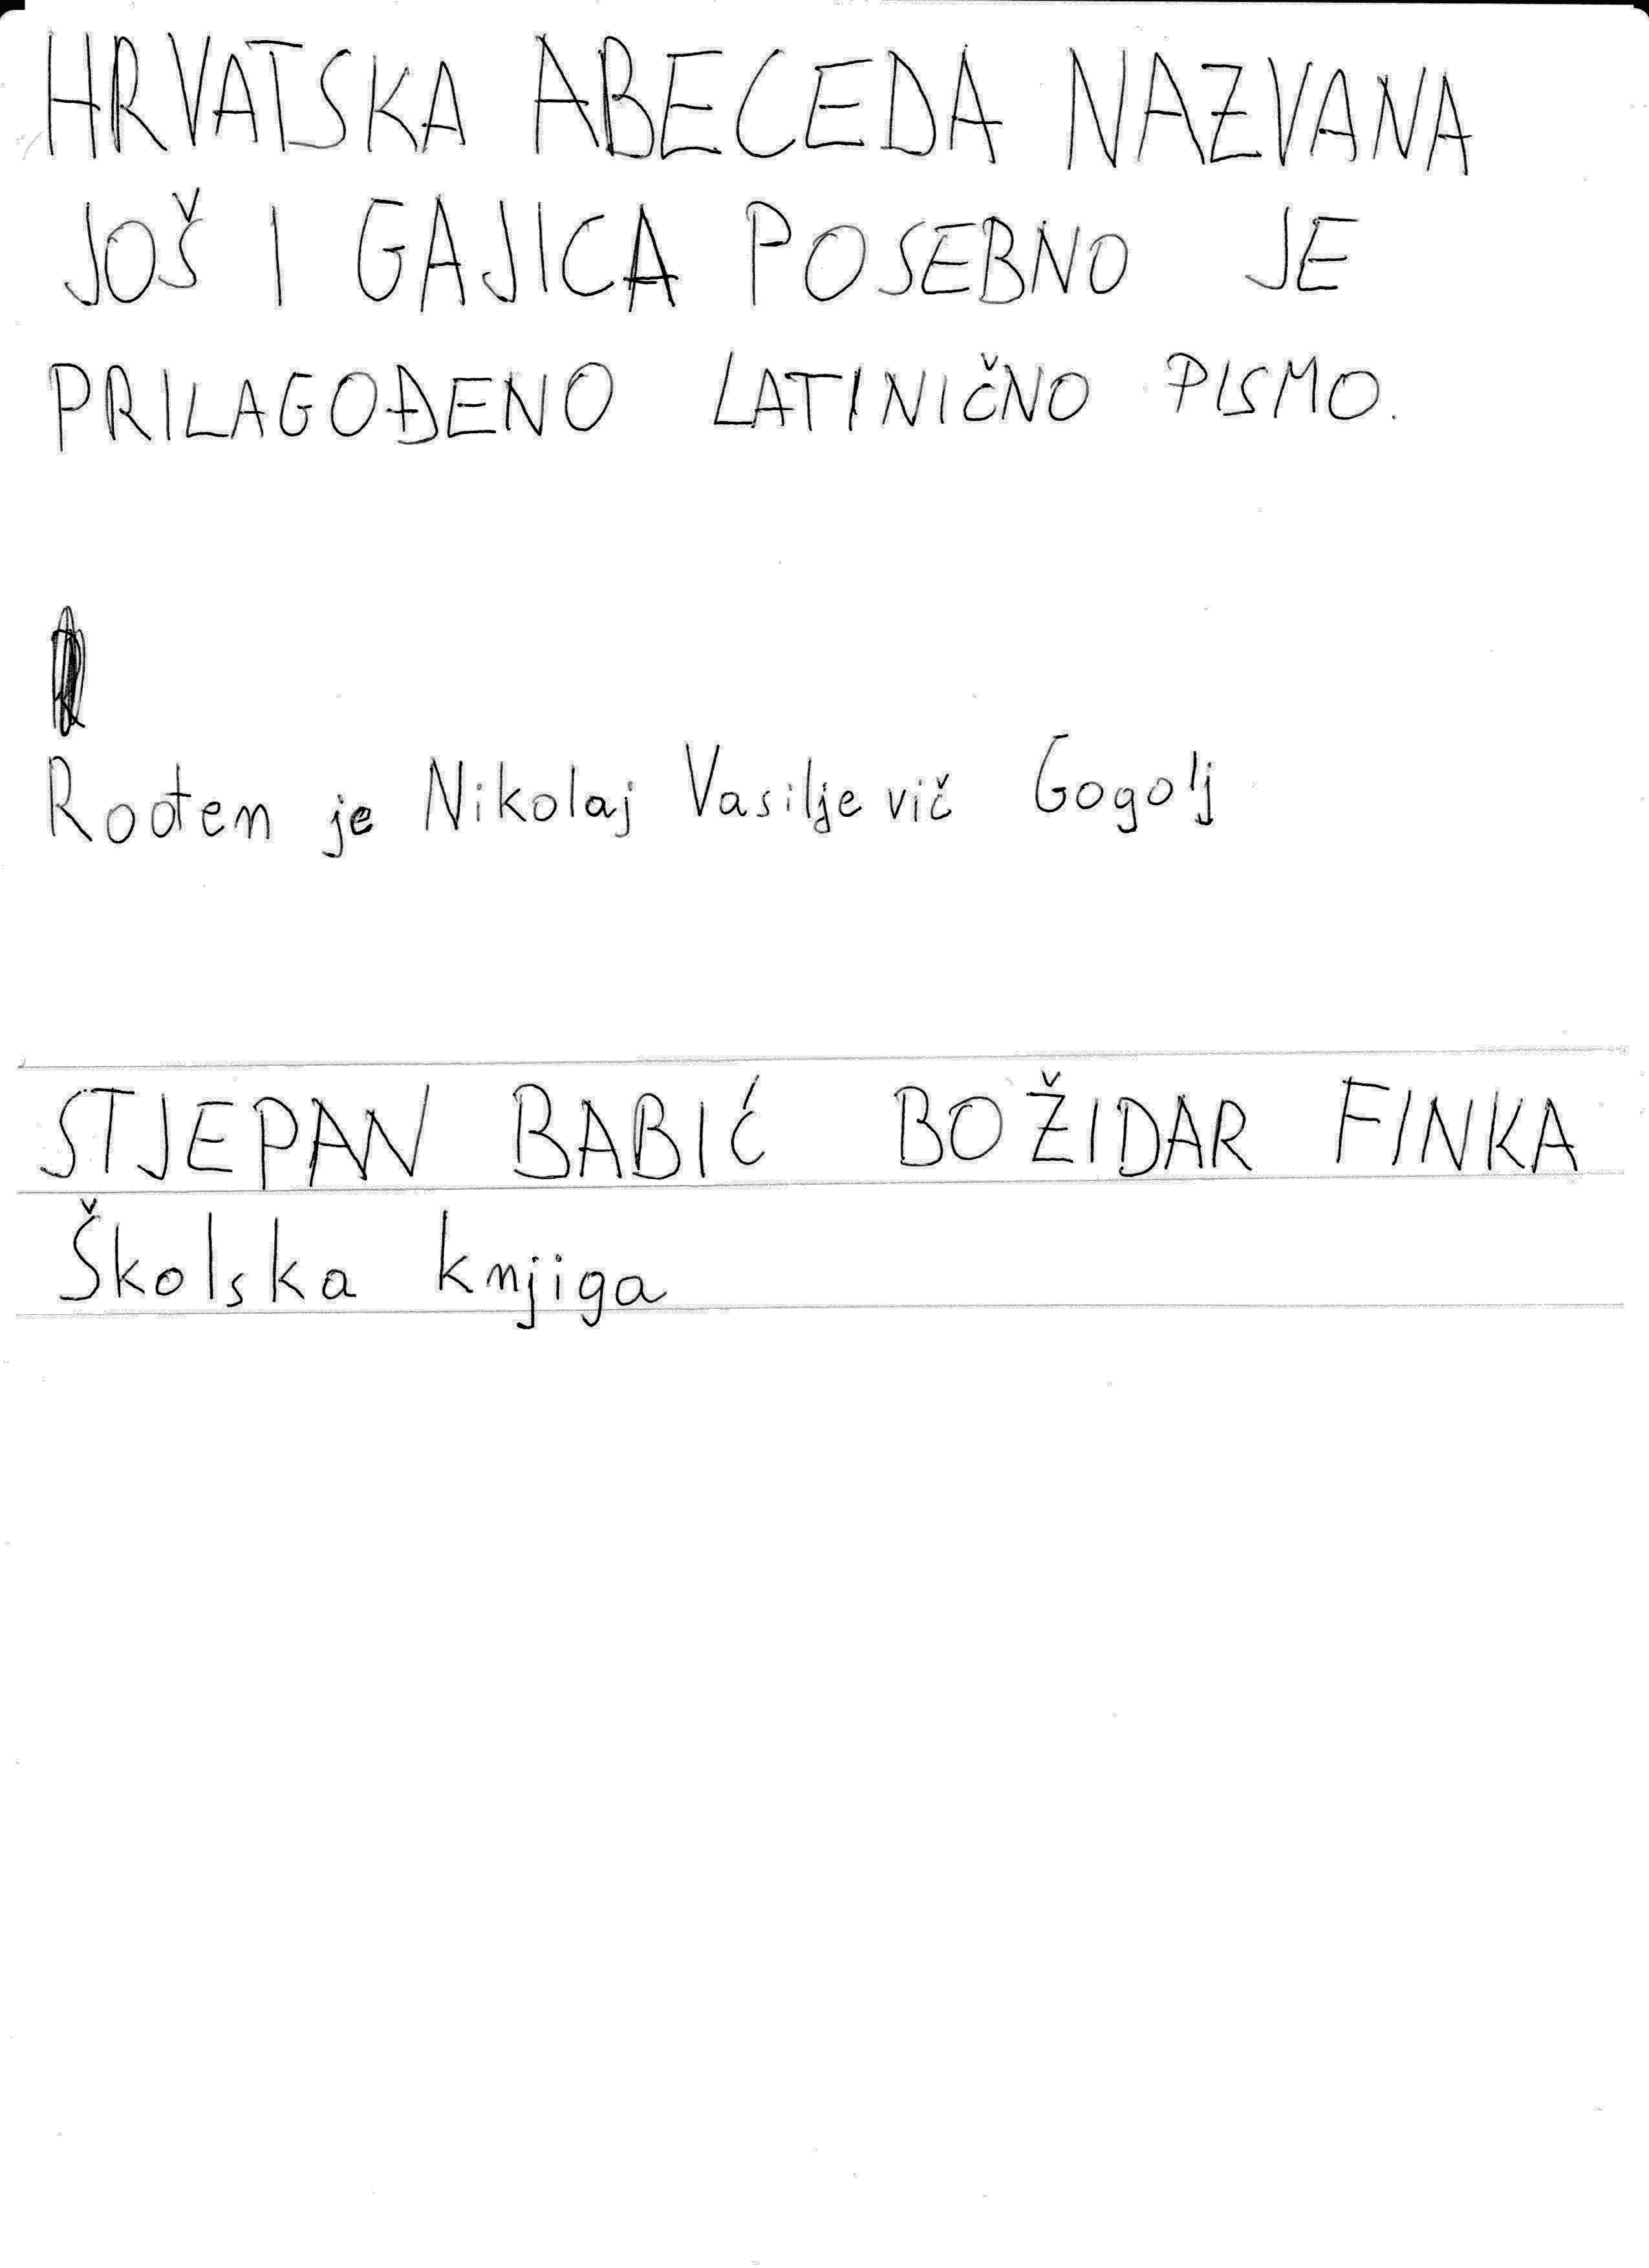 HRVATSKA ABECEDA NAZVANA
JOŠ I GAJICA POSEBNO JE
PRILAGOĐENO LATINIČNO PISMO.
Rođen je Nikolaj Vasiljevič Gogolj
STJEPAN BABIĆ BOŽIDAR FINKA
Školska knjiga